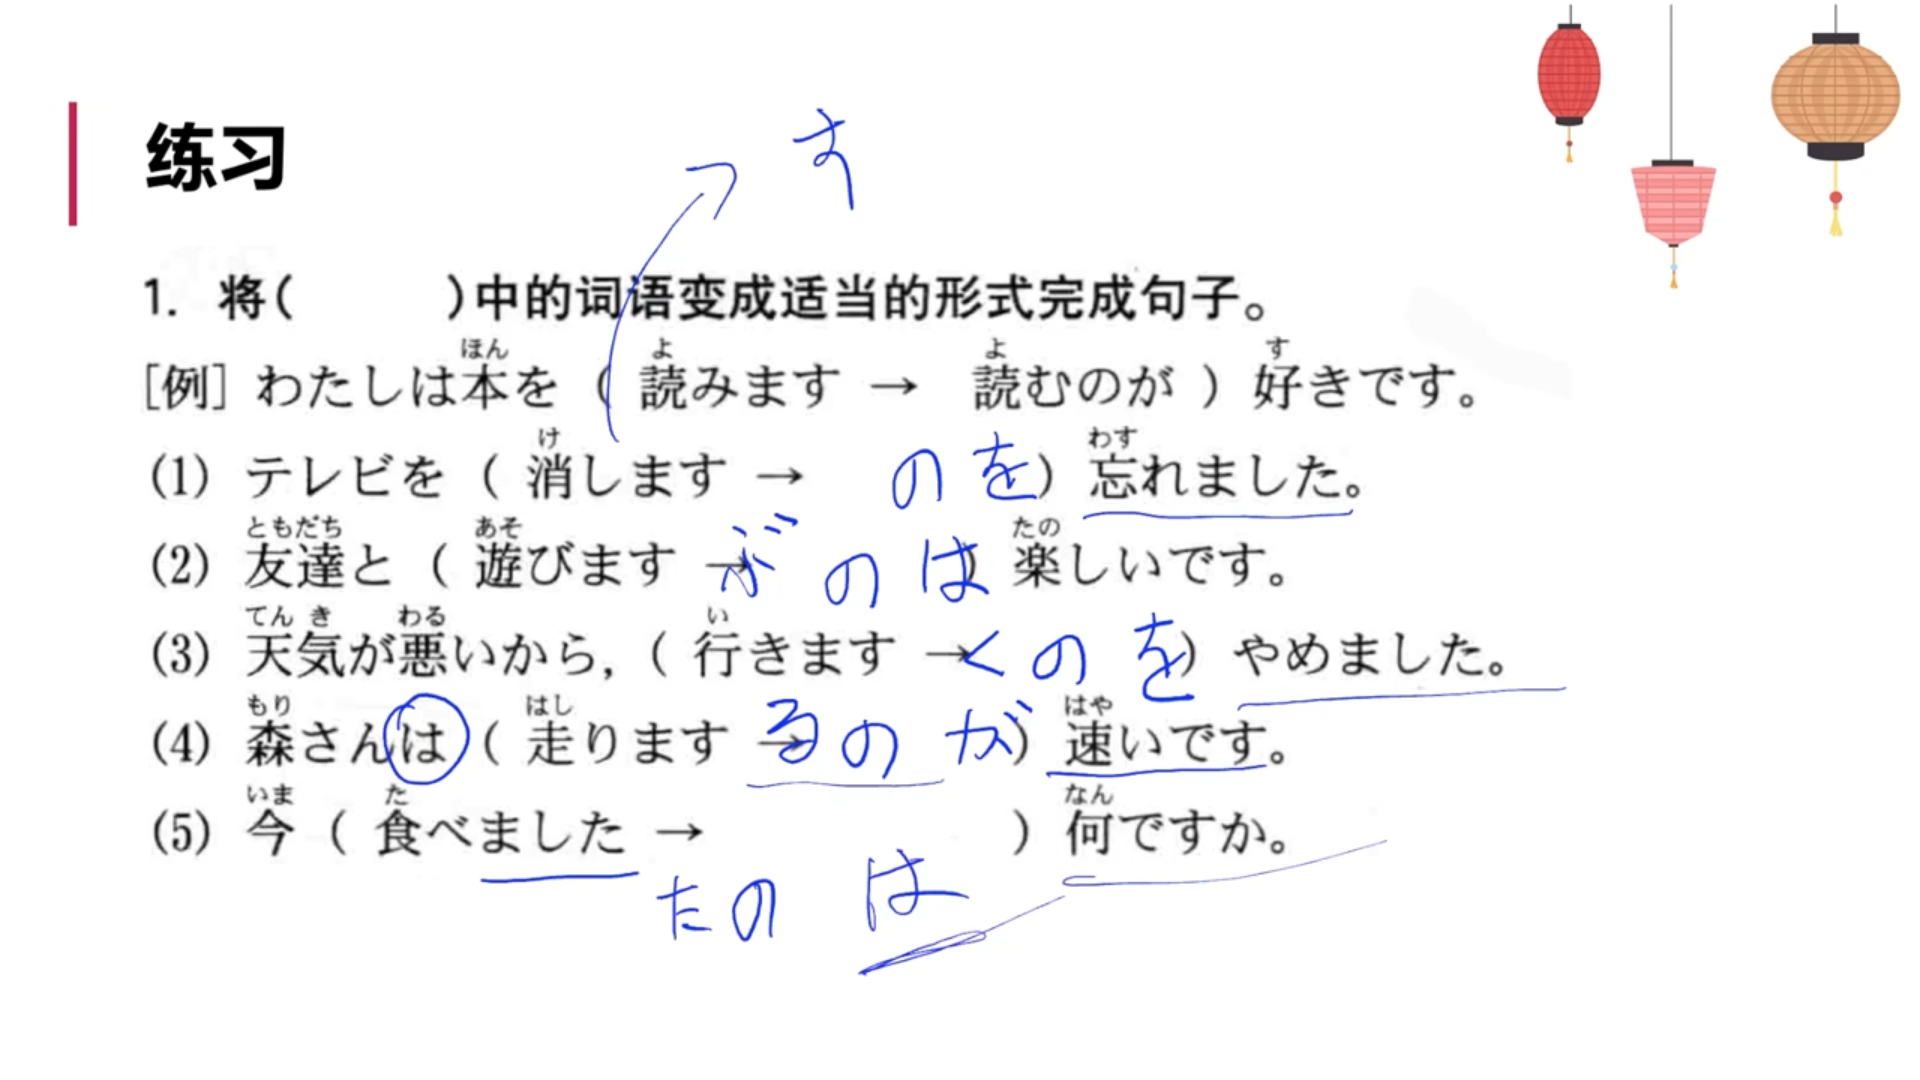 练习
す
1. 将(　　　)中的词语变成适当的形式完成句子。
ほん よ よ す
[例] わたしは本を ( 読みます → 読むのが ) 好きです。
け わす
(1) テレビを ( 消します → のを) 忘れました。
ともだち あそ たの
(2) 友達と ( 遊びます → ぶのは ) 楽しいです。
てん き わる い
(3) 天気が悪いから, ( 行きます → くのを ) やめました。
もり はし はや
(4) 森さんは ( 走ります → るのが ) 速いです。
いま た なん
(5) 今 ( 食べました → ) 何ですか。
たのは